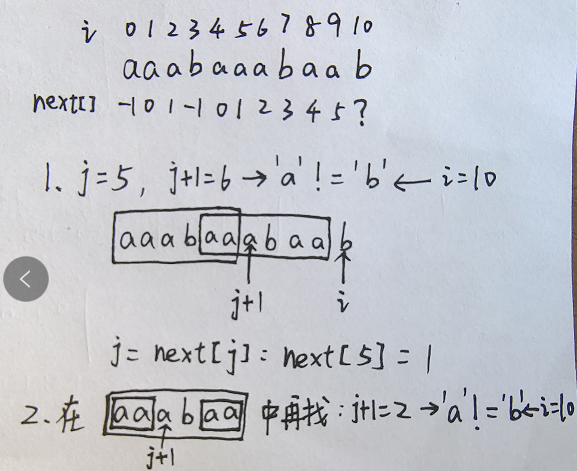 i 0 1 2 3 4 5 6 7 8 9 10
a a a b a a a b a a b
next[] -1 0 1 -1 0 1 2 3 4 5 ?
1. j=5, j+1=6 → 'a' != 'b' ← i=10
a a a b a a a b a a b
j+1 i
j = next[j] : next[5] = 1
2. 在 a a a b a a 中再找: j+1=2 → 'a' != 'b' ← i=10
j+1